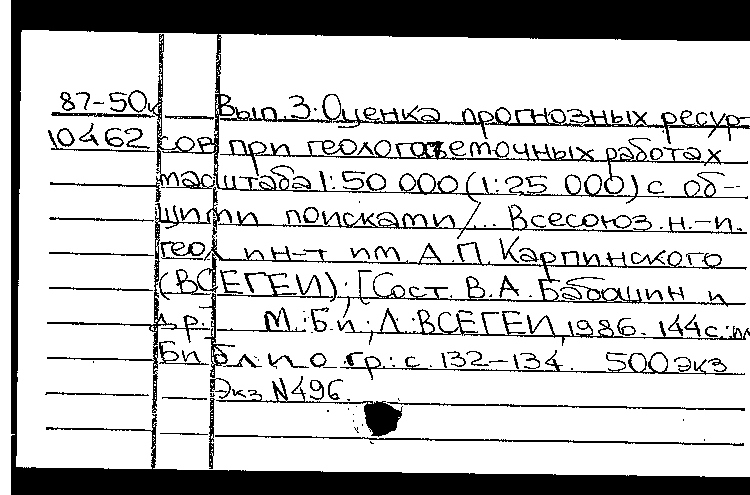 87-50к Вып.3: Оценка прогнозных ресур-
10462 сов при геологосъемочных работах
масштаба 1:50 000 (1:25 000) с об-
щими поисками /... Всесоюз. н.-и.
геол. ин-т им. А.П. Карпинского
(ВСЕГЕИ); [Сост. В.А. Бабошин и
др.] М.: Б.и.; Л.: ВСЕГЕИ, 1986. 144 с.: ил
Библиогр.: с. 132-134. 500 экз
Экз N496.